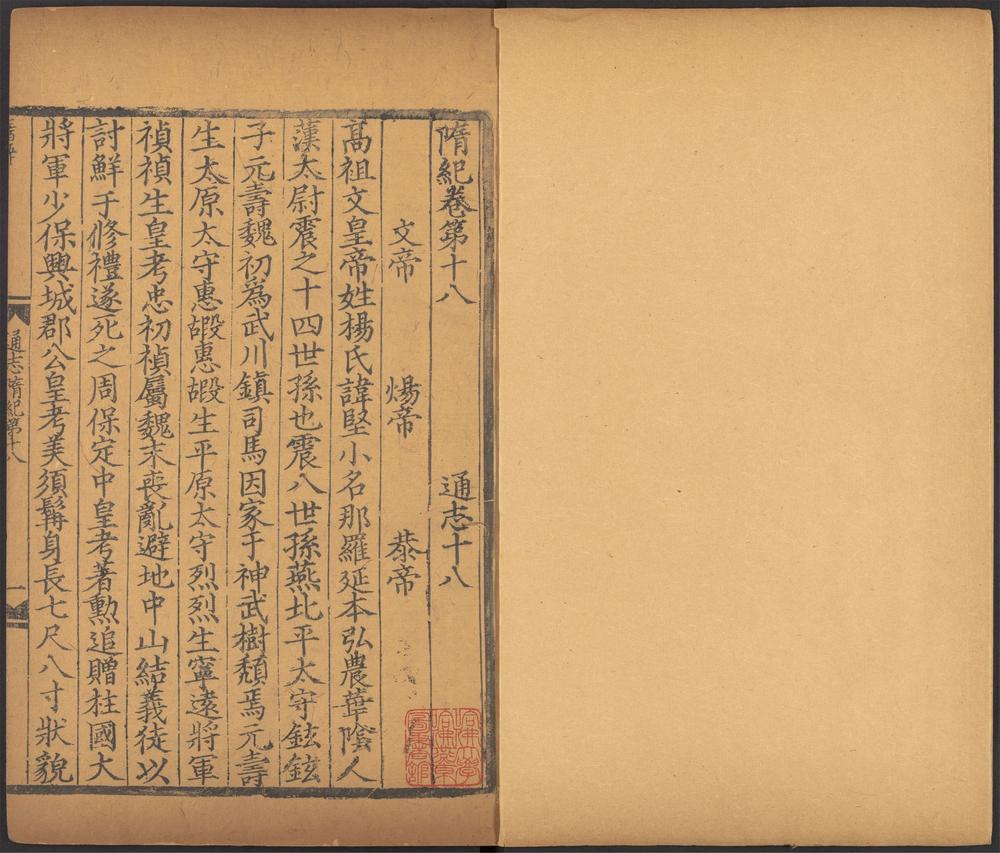 隋紀卷第十八 通志十八
文帝 煬帝 恭帝
高祖文皇帝姓楊氏諱堅小名那羅延本弘農華陰人
漢太尉震之十四世孫也震八世孫燕北平太守鉉鉉
子元壽魏初為武川鎮司馬因家于神武樹頹焉元壽
生太原太守惠嘏惠嘏生平原太守烈烈生寧遠將軍
禎禎生皇考忠初禎屬魏末喪亂避地中山結義徒以
討鮮于修禮遂死之周保定中皇考著勳追贈柱國大
將軍少保興城郡公皇考美須髯身長七尺八寸狀貌
通志隋紀第十八 一